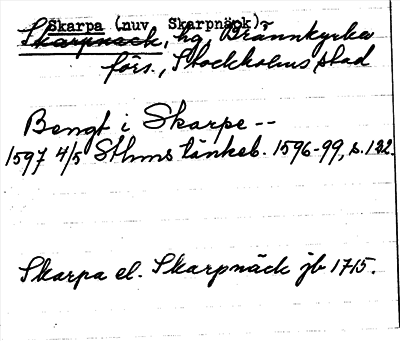 Skarpa (nuv. Skarpnäck)
Skarpnäck, hg Brännkyrka
förs., Stockholms stad
Bengt i Skarpe --
1597 4/5 Sthms tänkeb. 1596-99, s. 132.
Skarpa el. Skarpnäck jb 1715.